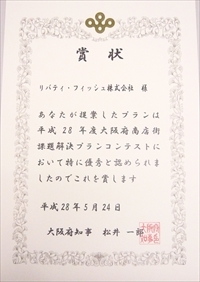 賞状
リバティ・フィッシュ株式会社 様
あなたが提案したプランは
平成28年度大阪府商店街
課題解決プランコンテストに
おいて特に優秀と認められま
したのでこれを賞します
平成28年5月24日
大阪府知事 松井 一郎